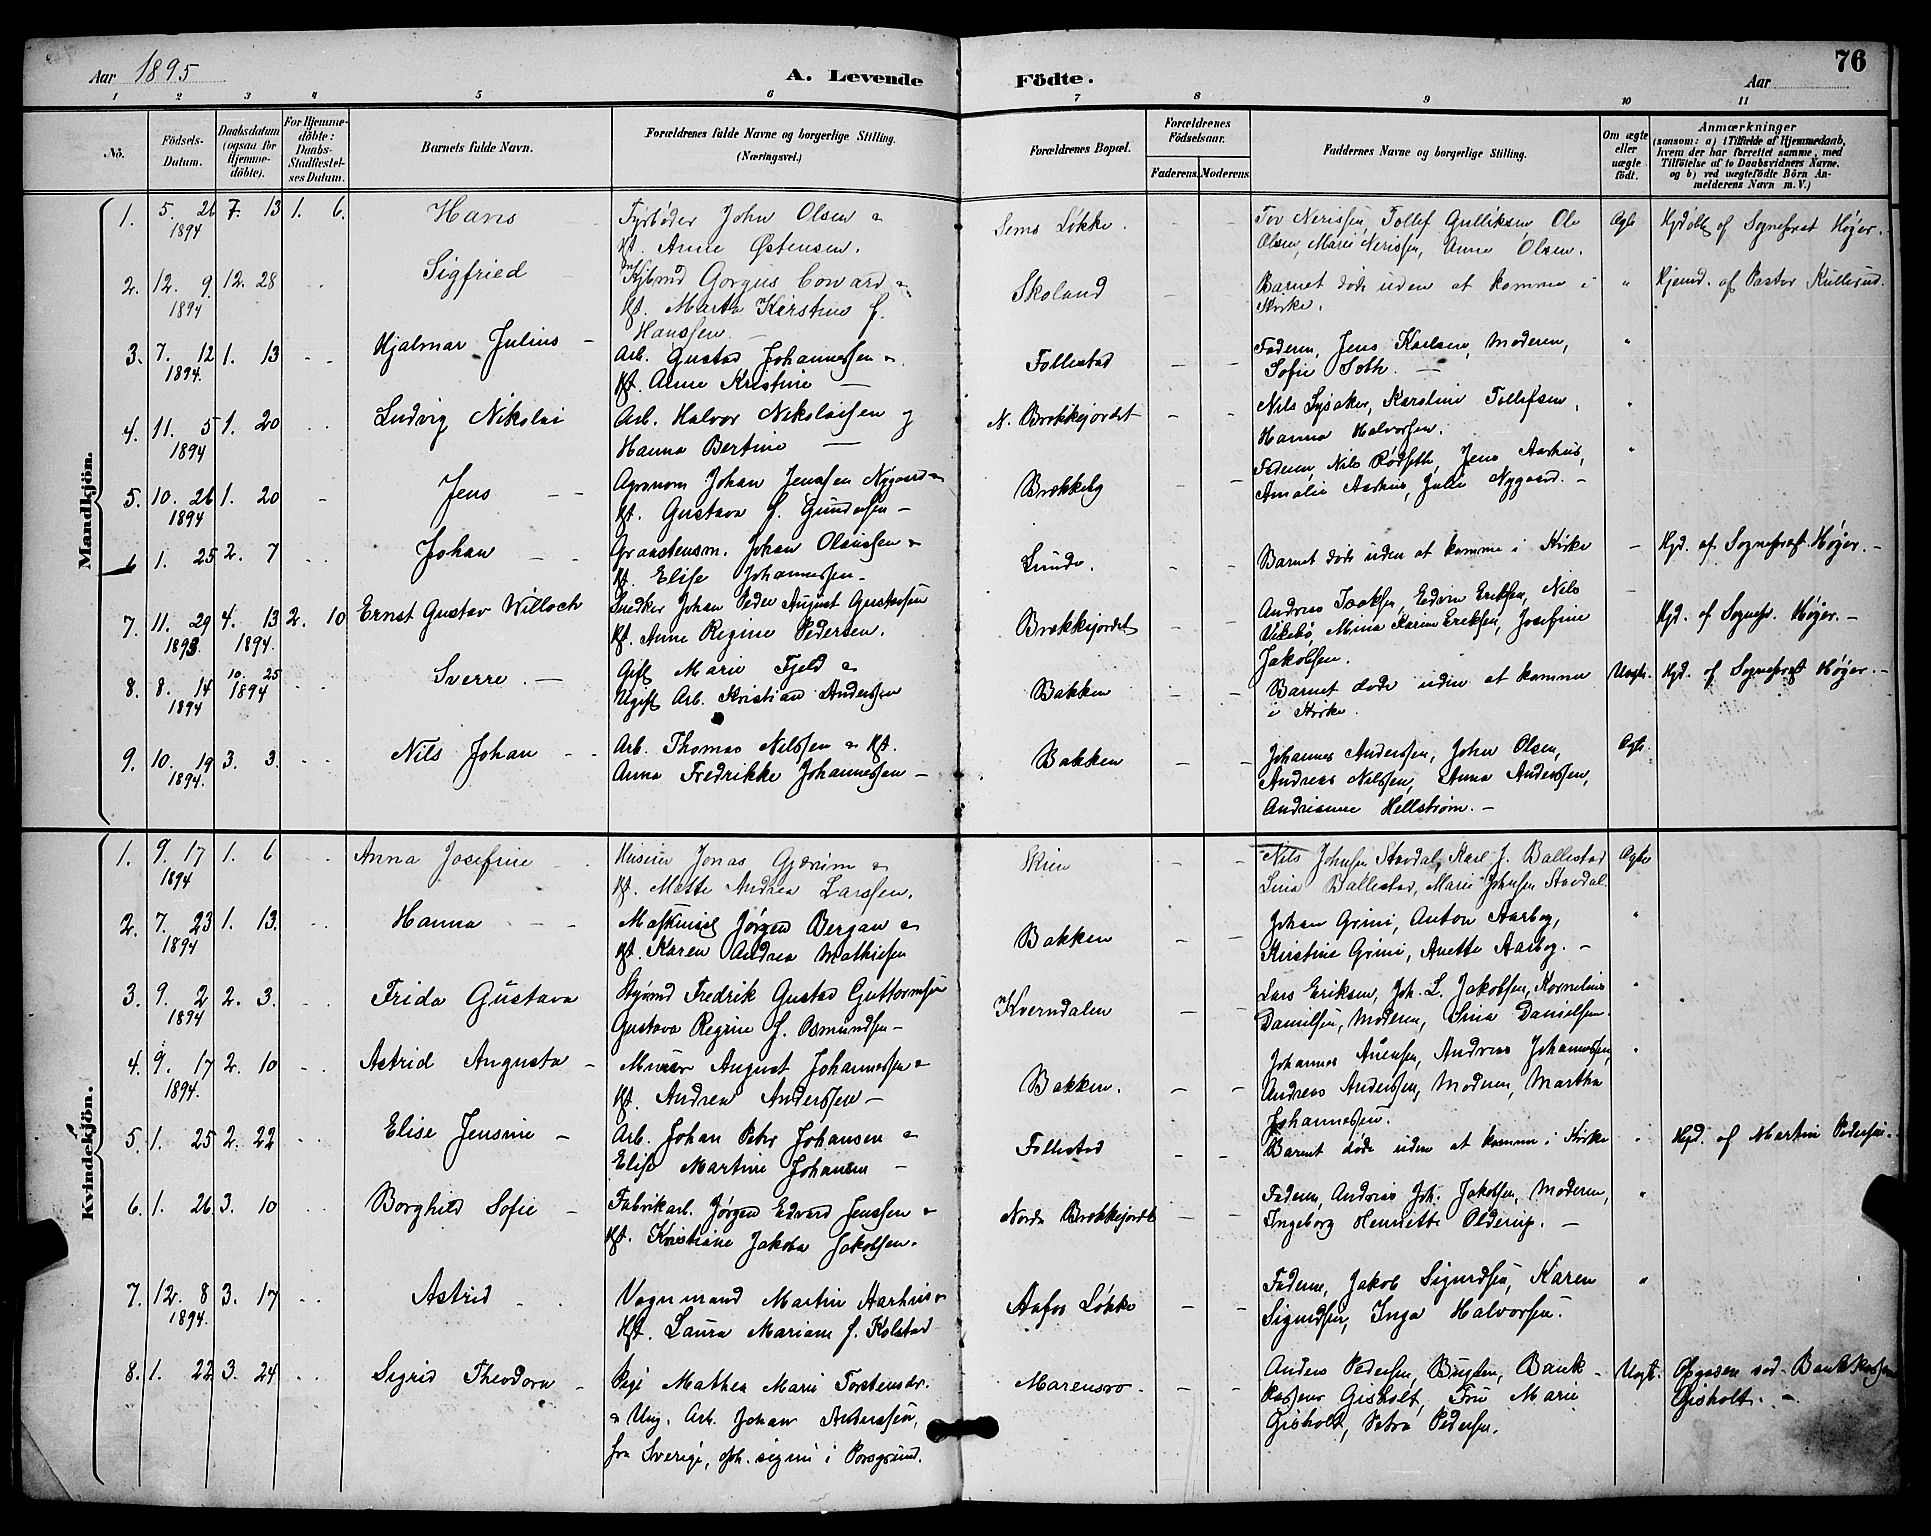 Aar 1895
A. Levende
Födte.
Aar
76
1 2 3 4 5 6 7 8 9 10 11
Nö.
Födsels-Datum.
Daabsdatum (ogsaa for Hjemme-döbte).
For Hjemme-döbte: Daabs-Stadfæstel-ses Datum.
Barnets fulde Navn.
Forældrenes fulde Navne og borgerlige Stilling. (Næringsvei.)
Forældrenes Bopæl.
Forældrenes Födselsaar.
Faderens.
Moderens.
Faddernes Navne og borgerlige Stilling.
Om ægte eller uægte födt.
Anmærkninger (saasom: a) i Tilfælde af Hjemmedaab, hvem der har forrettet samme, med Tilföielse af to Daabsvidners Navne. og b) ved uægtefödte Börn An-melderens Navn m. V.)
Mandkjön.
1. 5. 26 1894 7. 13 1. 6. Hans Fyrbøder John Olsen &
Kst. Anne Østensen.
Sems Løkke. Tov Nerissen, Tollef Gulliksen Ole
Olsen, Marie Nerissen, Anne Olsen.
Ægte Hjdøbt af Sognepræst Høyer.
2. 12. 9. 1894 12. 28 Sigfried Gorgus Conrad &
Kst. Marthe Kirstine f.
Hanssen
Skoland Barnet døde uden at komme i
Kirke.
" Hjemd. af Pastor Kullerud.
3. 7. 12 1894. 1. 13 Hjalmar Julius Arb. Gustav Johannessen &
Kst. Anne Kristine
Follestad Faderen, Jens Karlsen, Moderen,
Sofie Soth.
"
4. 11. 5 1894 1. 20 Ludvig Nikolai Arb. Halvor Nikolaisen og
Hanna Bertine
N. Brekkejordet Nils Lysaker, Karoline Tollefsen,
Hanna Halvorsen.
"
5. 10. 26 1894 1. 20 Jens Agronom Johan Jenssen Nygaard &
Kst. Gustava f. Gundersen
Brekkeby Faderen, Nils Rødseth, Jens Aarhus,
Amalie Aarhus, Julie Nygaard.
"
6 1. 25 2. 7 Johan Graastensm. Johan Olausen &
Kst. Elise Johannessen.
Lunde. Barnet døde uden at komme i Kirke
Hjd. af Sognepræst Høyer.
7. 11. 29 1893. 4. 13 1894. 2. 10 Ernst Gustav Willoch Snedker Johan Peder August Gustavsen
Kst. Anne Regine Pedersen.
Brekkejordet Andreas Isaksen, Edvin Eriksen, Nils
Vikebø, Mina Karine Eriksen, Josefine
Jakobsen.
Hjd. af Sognep. Høyer.
8. 8. 14 1894 10. 25 1894 Sverre. Gift Marie Fjeld &
Ugift Arb. Kristian Anderssen
Bakken Barnet døde uden at komme
i Kirke.
Uægte. Hjd. af Sognepræst Høyer.
9. 10. 19 1894. 3. 3. Nils Johan Arb. Thomas Nilssen & Kst.
Anna Fredrikke Johannessen
Bakken Johannes Anderssen, John Olsen,
Andreas Nilssen, Anna Anderssen,
Andrianne Hellstrøm.
Ægte
Kvindekjön.
1. 9. 17 1894 1. 6 Anna Josefine Huseier Jonas Gjerim &
Kst. Mathe Andrea Larssen.
Skien Nils Johnsen Stavdal, Karl J. Ballestad
Lina Ballestad, Marie Johnsen Stavdal.
Ægte
2. 7. 23 1894 1. 13. Hanna Jørgen Bergan &
Kst. Karen Andrea Mathisen
Bakken Johan Grini, Anton Aarbog,
Kirstine Grini, Anette Aarbog.
"
3. 9. 2 1894 2. 3. Frida Gustava Styrmd Fredrik Gustav Guttormsen
Gustava Regine f. Osmundsen
Kverndalen Lars Eriksen, Joh. L. Jakobsen, Kornelius
Danielsen, Moderen, Lina Danielsen.
"
4. 9. 17 1894. 2. 10 Astrid Augusta Murer August Johannessen &
Kst. Andrea Anderssen
Bakken. Johannes Auensen, Andreas Johannessen,
Andreas Anderssen, Moderen, Martha
Johannessen.
"
5. 1. 25 2. 22 Elise Jensine Arb. Johan Peter Johansen &
Elise Martine Johansen
Follestad Barnet døde uden at komme i Kirke
" Hjd. af Martin Pedersen.
6. 1. 26 3. 10 Borghild Sofie Fabrikarb. Jørgen Edvard Jenssen &
Kst. Kristiane Jakoba Jakobsen.
Nordre Brekkejordet Faderen, Andreas Joh. Jakobsen, Moderen,
Ingeborg Henriette Olderup.
"
7. 12. 8 1894. 3. 17 Astrid Vognmand Martin Aarhus &
Kst. Laura Mariane f. Kolstad
Aafos Løkke Faderen, Jakob Sigurdsen, Karen
Sigurdsen, Inga Halvorsen.
"
8. 1. 22 3. 24 Sigrid Theodora Pige Mathea Marie Torstensdr.
& Ung. Arb. Johan Anderssen,
fra Sverige, oph. i Porsgrund.
Marensro Anders Pedersen, Bank-
kasserer Gisholt, Fru Marie
Gisholt, Petra Pedersen.
Uægt. Opgaven ved Bankkasserer
Gisholt.